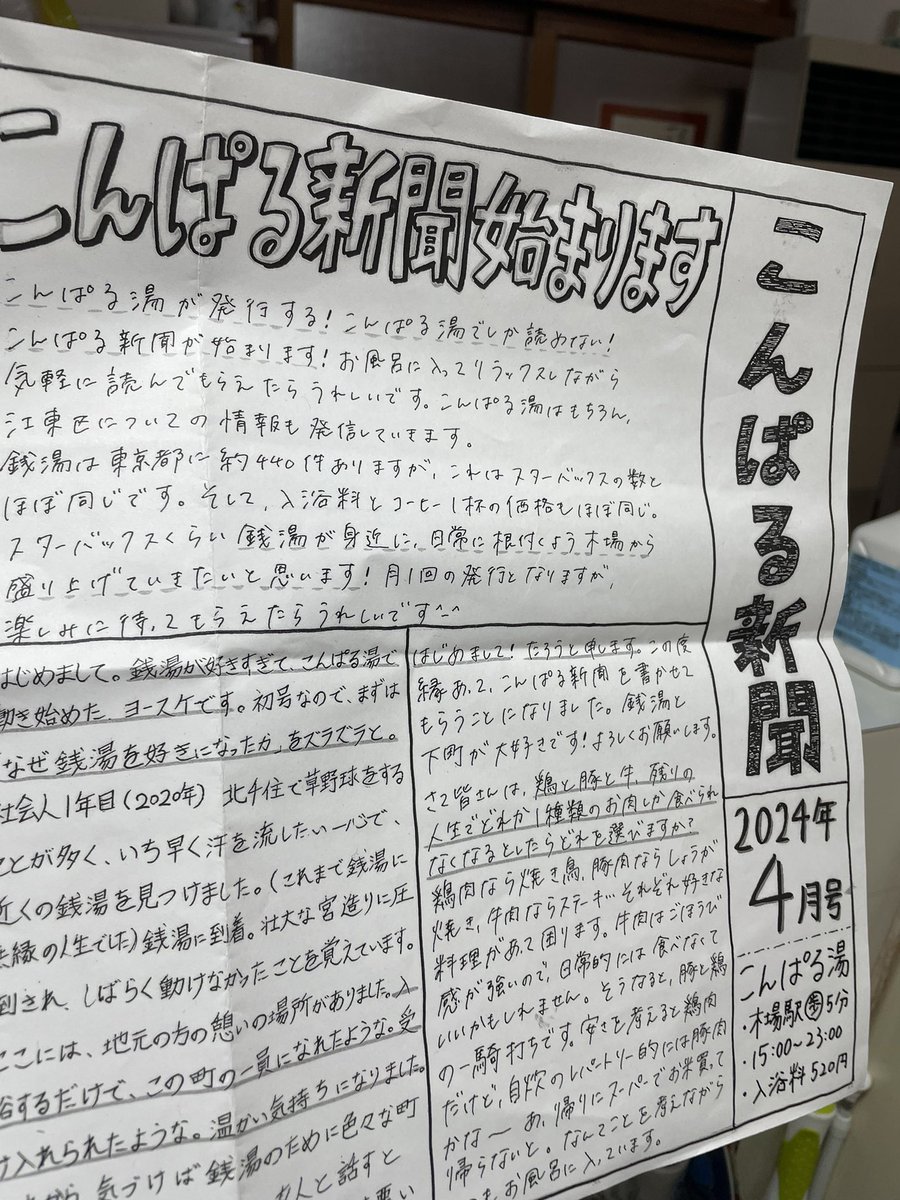 こんぱる新聞始まります
こんぱる湯が発行する！こんぱる湯でしか読めない！
こんぱる新聞が始まります！お風呂に入ってリラックスしながら
気軽に読んでもらえたらうれしいです。こんぱる湯はもちろん、
江東区についての情報も発信していきます。
銭湯は東京都に約440件ありますが、これはスターバックスの数と
ほぼ同じです。そして、入浴料とコーヒー1杯の価格もほぼ同じ。
スターバックスくらい銭湯が身近に、日常に根付くよう木場から
盛り上げていきたいと思います！月1回の発行となりますが、
楽しみに待ってもらえたらうれしいです^-^
こんぱる新聞
2024年
4月号
こんぱる湯
・木場駅歩5分
・15:00~23:00
・入浴料520円
はじめまして！たろうと申します。この度
縁あって、こんぱる新聞を書かせて
もらうことになりました。銭湯と
下町が大好きです！よろしくお願いします。
さて皆さんは、鶏と豚と牛、残りの
人生でどれか1種類のお肉しか食べられ
なくなるとしたらどれを選びますか？
鶏肉なら焼き鳥、豚肉ならしょうが
焼き、牛肉ならステーキ…それぞれ好きな
料理があって困ります。牛肉はごほうび
感が強いので、日常的には食べなくて
いいかもしれません。そうなると、豚と鶏
の一騎打ちです。安さを考えると鶏肉
だけど、自炊のレパートリー的には豚肉
かな〜 あ、帰りにスーパーでお米買って
帰らないと。なんてことを考えながら
お風呂に入っています。
はじめまして。銭湯が好きすぎて、こんぱる湯で
働き始めた、ヨースケです。初号なので、まずは
「なぜ銭湯を好きになったか」をズラズラと。
社会人1年目(2020年) 北千住で草野球をする
ことが多く、いち早く汗を流したい一心で、
近くの銭湯を見つけました。(これまで銭湯に
無縁の人生でした)銭湯に到着。壮大な宮造りに圧
倒され、しばらく動けなかったことを覚えています。
ここには、地元の方の憩いの場所がありました。入
浴するだけで、この町の一員になれたような。受
け入れられたような。温かい気持ちになりました。
気づけば銭湯のために色々な町
人と話すと